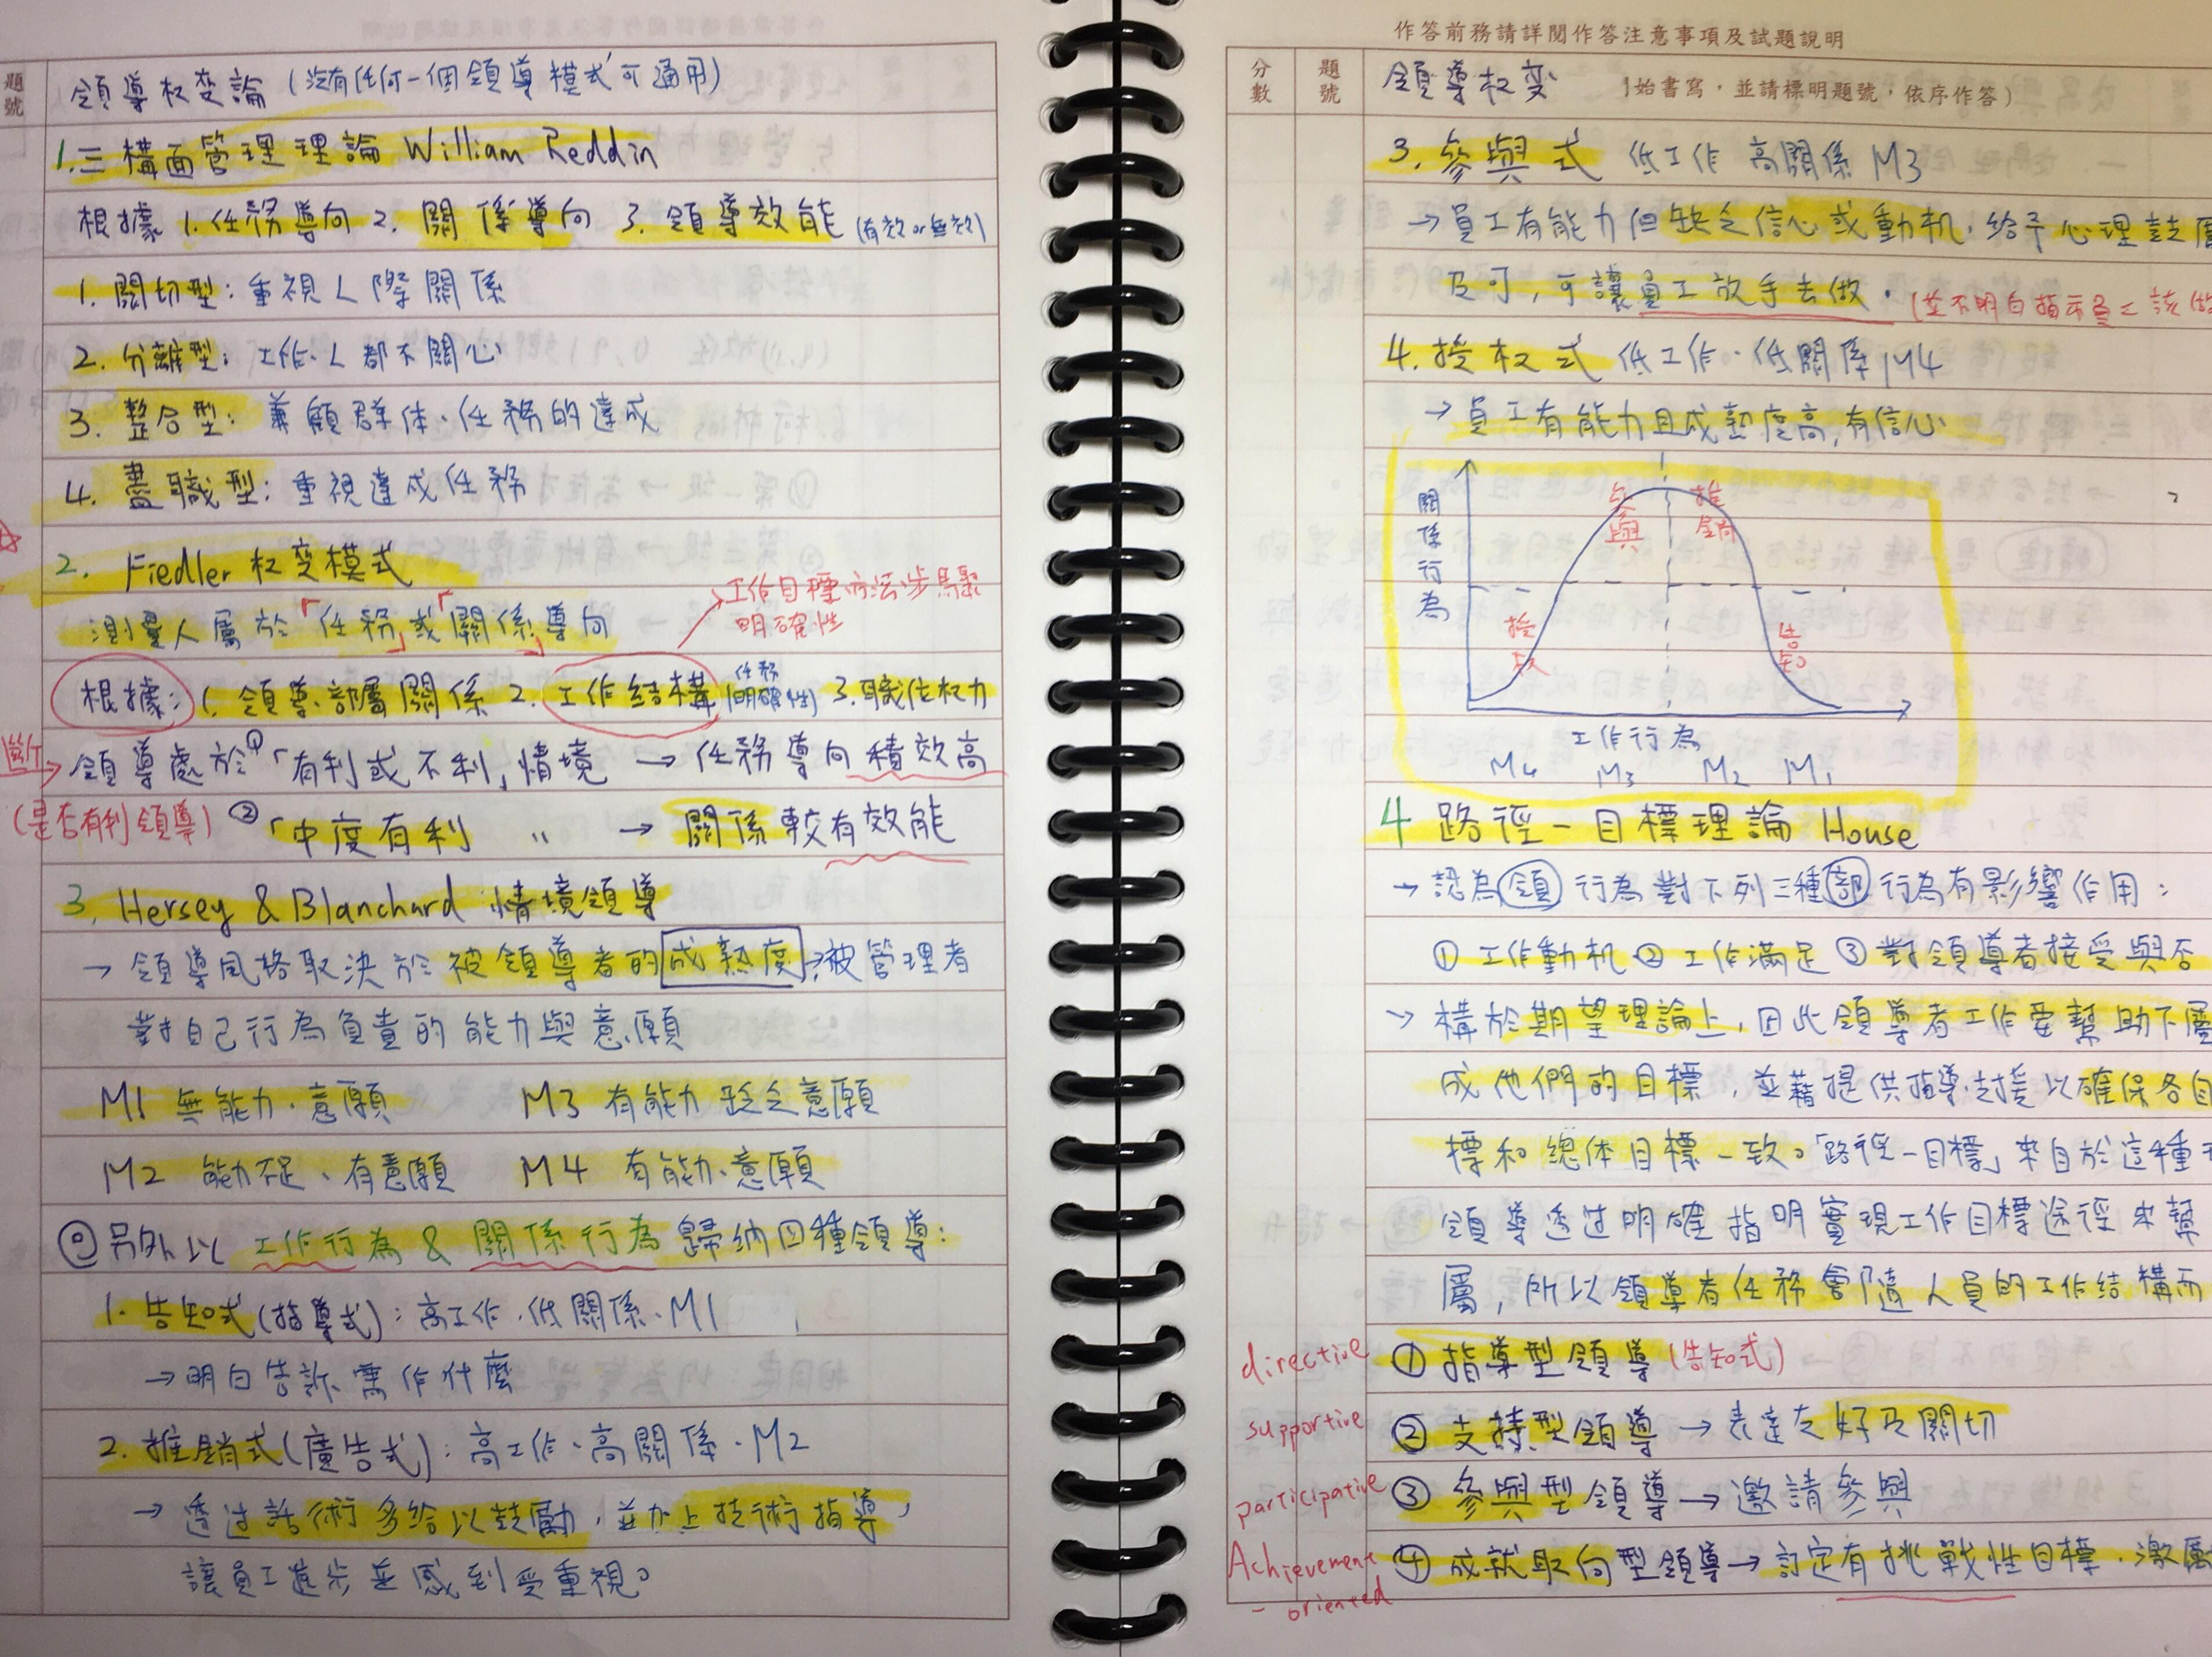 題號
領導权变論（沒有任何一個領導模式可通用）
1.三構面管理理論 William Reddin
根據 1.任務導向 2.關係導向 3.領導效能（有效or無效）
1.關切型：重視人際關係
2.分離型：工作、人都不關心
3.整合型：兼顧群体、任務的達成
4.盡職型：重視達成任務
2. Fiedler 权变模式
測量人屬於「任務」或「關係」導向
工作目標方法步驟
明確性
根據：1.領導、部屬關係 2.工作結構（任務明確性）3.職位权力
領導處於①「有利或不利」情境 → 任務導向積效高
（是否有利領導）②「中度有利 〃 → 關係較有效能
3. Hersey & Blanchard 情境領導
→ 領導風格取決於被領導者的成熟度，被管理者
對自己行為負責的能力與意願
M1 無能力、意願 M3 有能力缺乏意願
M2 能力不足、有意願 M4 有能力、意願
另外以工作行為 & 關係行為歸納四種領導：
1.告知式（指導式）：高工作、低關係、M1
→明白告訴需作什麼
2.推銷式（廣告式）：高工作、高關係、M2
→ 透过話術多給以鼓勵，並加上技術指導，
讓員工進步並感到受重視。
作答前務請詳閱作答注意事項及試題說明
分數
題號
領導权变 始書寫，並請標明題號，依序作答）
3.參與式 低工作 高關係 M3
→員工有能力但缺乏信心或動机，給予心理鼓
及可，可讓員工放手去做。（並不明白指示員工該做
4.授权式 低工作、低關係 M4
→ 員工有能力且成熟度高，有信心
關係行為
參與
推銷
授权
告知
工作行為
M4 M3 M2 M1
4 路徑－目標理論 House
→ 認為領行為對下列三種部行為有影響作用：
①工作動机 ②工作滿足 ③對領導者接受與否
→ 構於期望理論上，因此領導者工作要幫助下屬
成他們的目標，並藉提供指導、支援以確保各自
標和總体目標一致。「路徑－目標」來自於這種
領導透过明確指明實現工作目標途徑來幫
屬，所以領導者任務會隨人員的工作結構而
directive ①指導型領導（告知式）
supportive ②支持型領導→表達友好及關切
participative ③參與型領導→邀請參與
Achievement ④成就取向型領導→訂定有挑戰性目標、激
- oriented